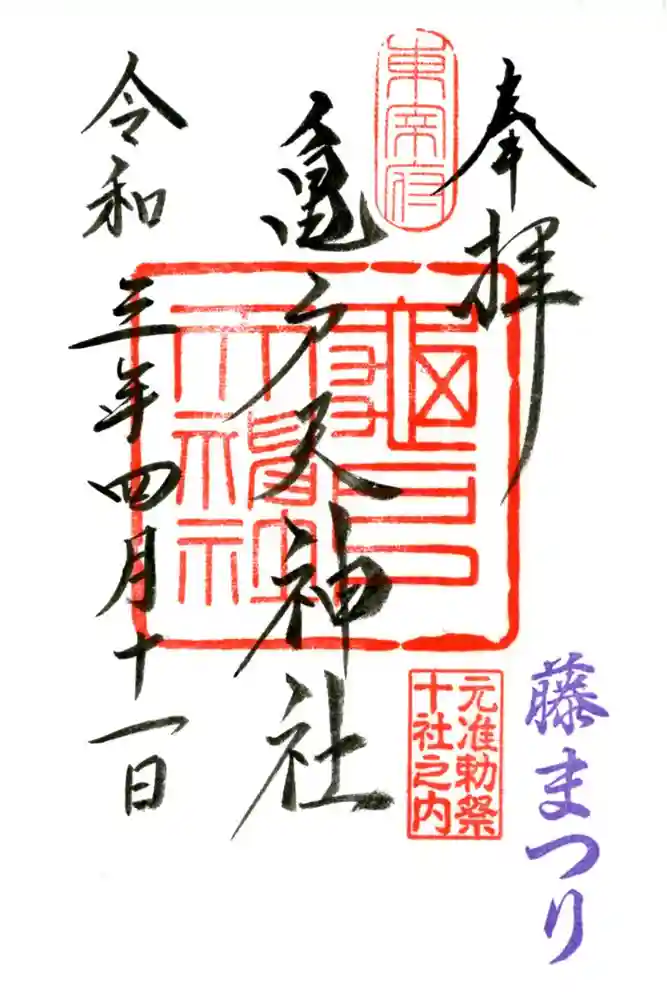 奉拝
東京府
亀戸天神社
亀戸
天神社
元准勅祭
十社之内
令和三年四月十一日
藤まつり